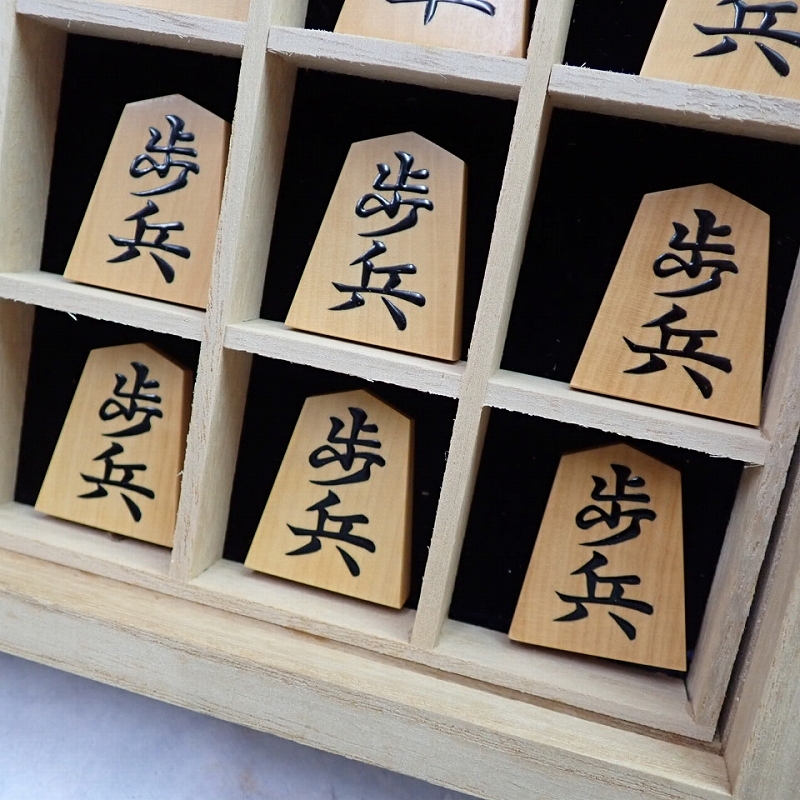 兵
歩
兵
歩
兵
歩
兵
歩
兵
歩
兵
歩
兵